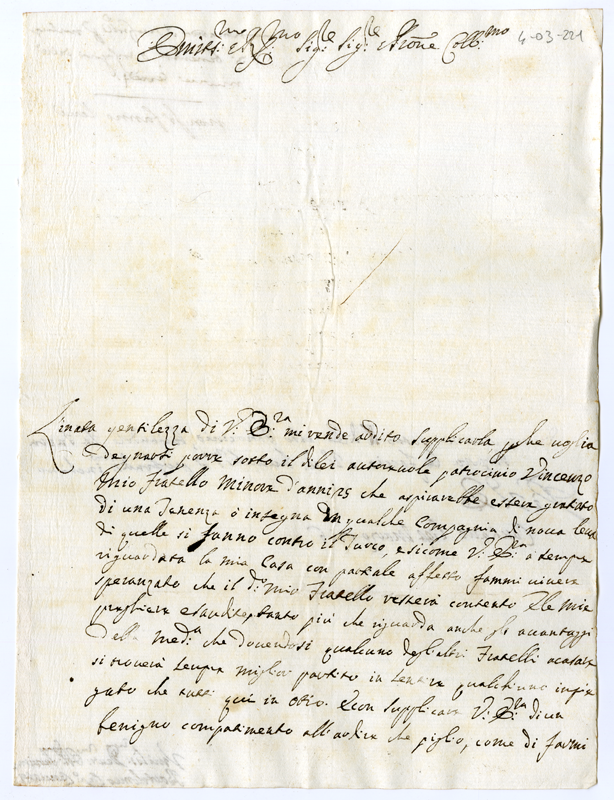 4-03-221
Ill.mo et Ecc.mo Sig.re Sig.re P.rone Coll.mo
L'inata gentilezza di V.ra Ecc.za mi rende ardito supplicarla perche voglia
degnarsi porre sotto il di lei autorevole patrocinio Vincenzo
mio fratello minore d'anni 25 che aspirarebbe esser graziato
di una Tenenza ò insegna in qualche Compagnia di nova leva
di quelle si fanno contro il Turco, e sicome V: a sempre
riguardata la mia Casa con parziale affetto fammi vivere
speranzato che il d.o mio fratello resterà contento delle mie
preghiere esaudite, tanto più che riguarda anche gli avantaggi
della med.a che dovendosi qualcuno degli altri fratelli acasare
si troverà sempre miglior partito in sentire qualch'uno impie
gato che tutti quì in otio. Con supplicare V: di un
benigno compatimento all'ardire che piglio, come di farmi